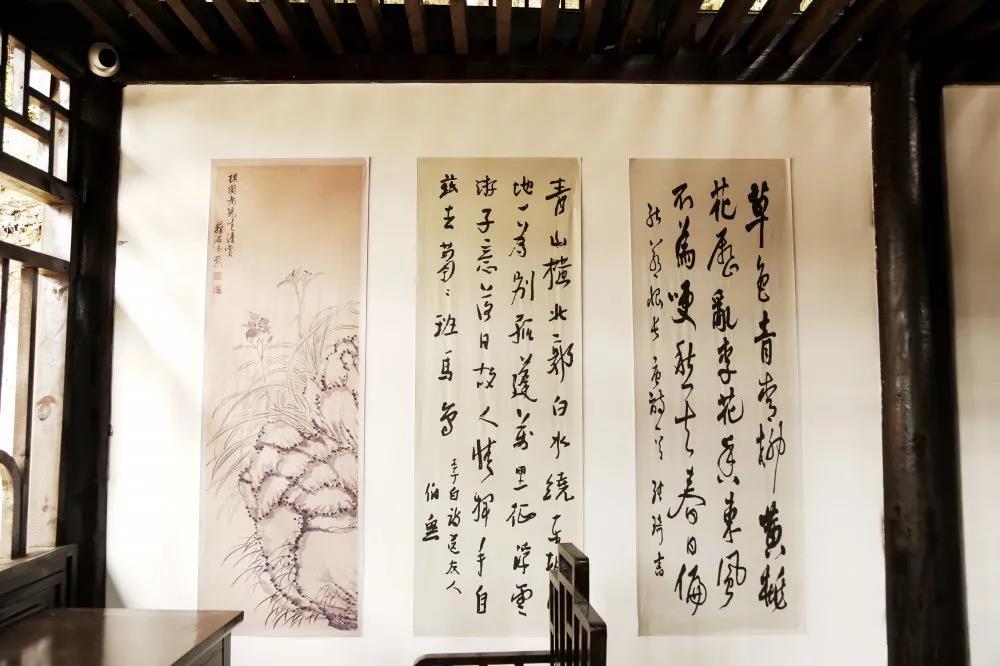 草色青青柳黄桃
花歷亂李花香東風
不為吹愁去春日偏
能惹恨長 唐詩一首 張琦書
青山橫北郭白水繞東城
地一為別孤蓬萬里征浮雲
游子意落日故人情揮手自
茲去蕭々班馬鳴
李白詩送友人
伯無
老先生清賞